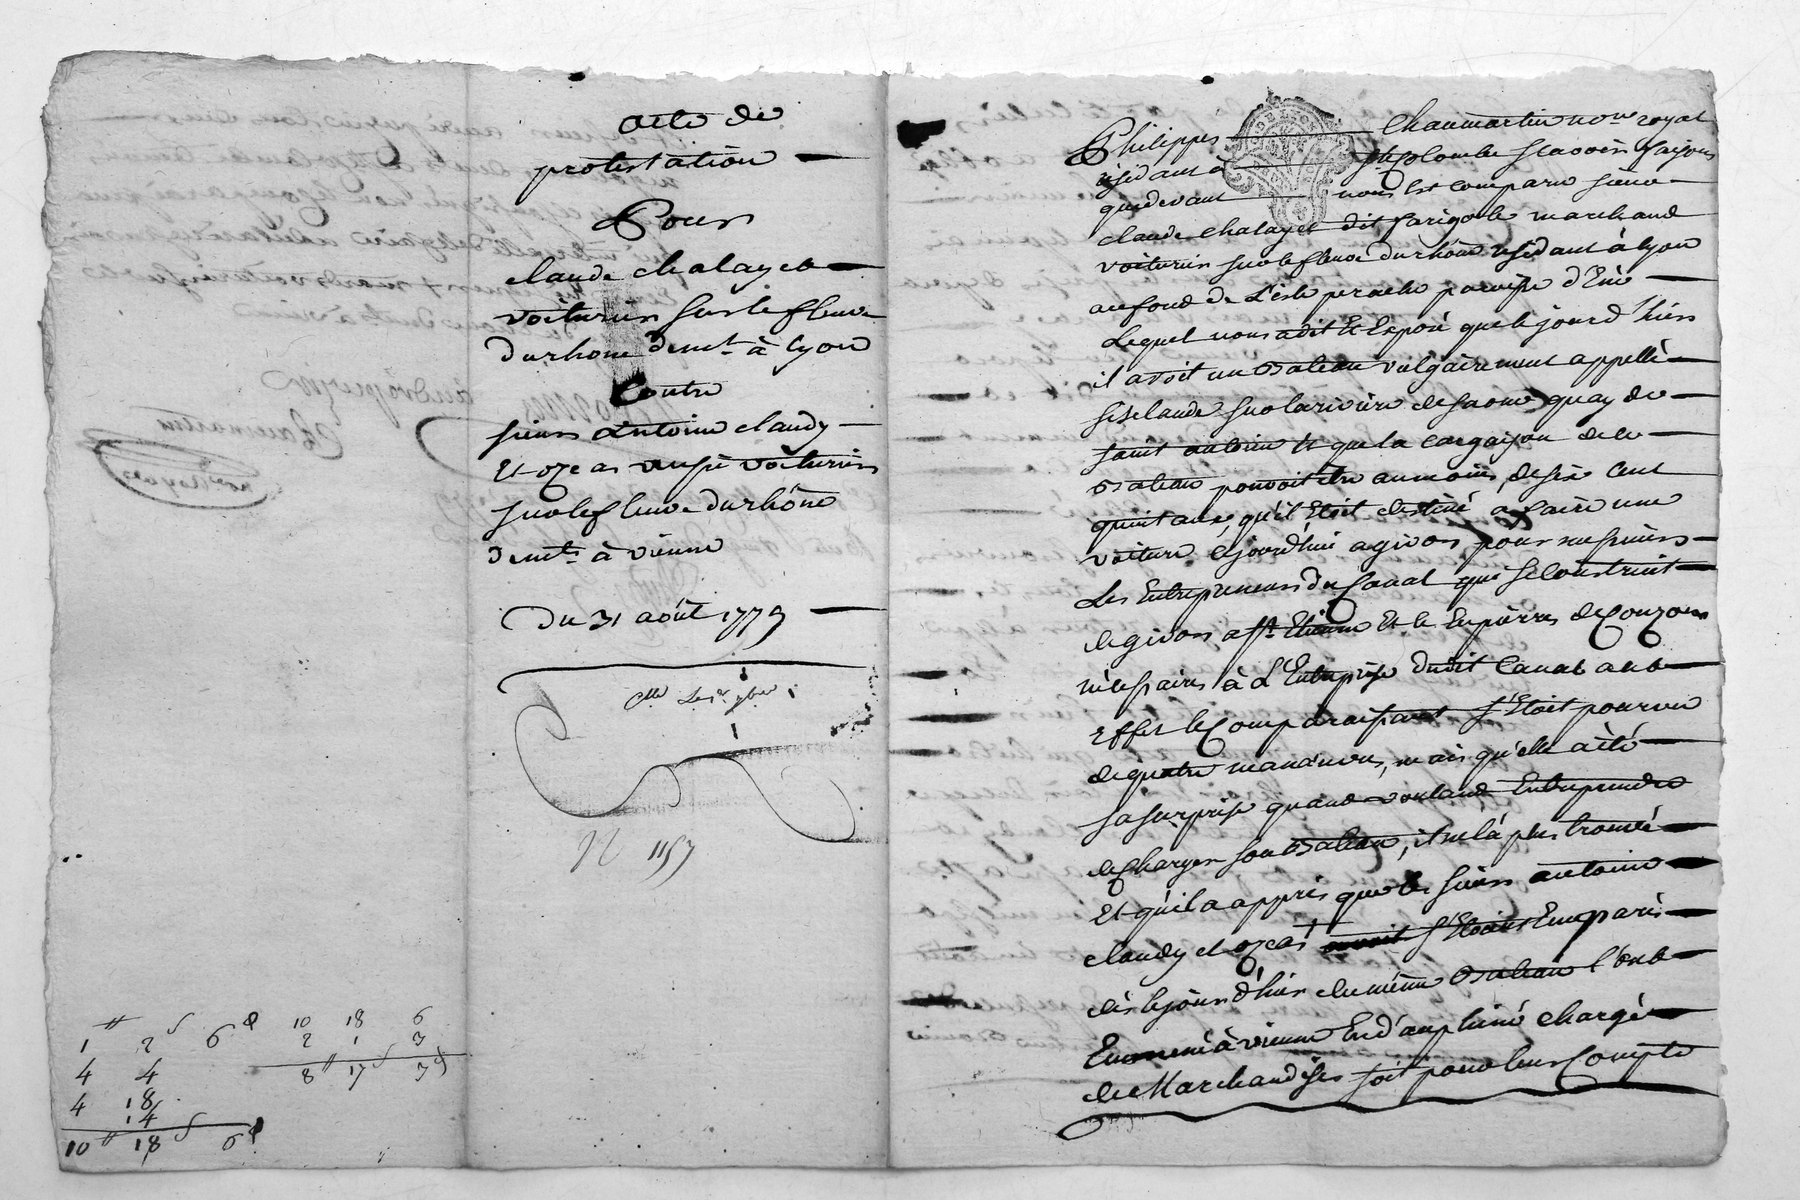 acte de
protestation
Pour
claude chalayer
voiturier sur le fleuve
du rhone demt à lyon
Contre
sieurs Antoine claudy
Et ozeas aussi voituriers
sur le fleuve du rhône
demts à vienne
Du 31 août 1779
N 1157
1 2 6 d
4 4
4 18
14
10 18 6 d
10 18 6
2 1 3
8 17 3
Philippes Chaumartin nore royal
residant à ste Colombe sçavoir faisons
que devant nous Est comparu sieur
claude chalayer dit marchand
voiturier sur le fleuve du rhône residant à lyon
au fond de L'isle perache paroisse d'Enè
Lequel nous a dit Et Exposé que le jour d'hier
il avoit un Bateau vulgairement appellé
siselande sur la rivière de saone quay de
saint antoine Et que la cargaison de ce
Bateau pouvoit être au moins de six Cent
quintaux, qu'il Etoit destiné a faire une
voiture cejourd'hui a givors pour messieurs
Les Entrepreneurs du Canal qui se Construit
de givors a st Etienne Et de pierres de Couzon
nécessaires à L'Entreprise dudit Canal a cet
Effet le Comparaissant s'Etoit pourvu
de quatre manœuvres, mais qu'elle a été
sa surprise quand voulant Entreprendre
de Charger son Bateau, il ne l'a plus trouvé
Et qu'il a appris que les sieurs antoine
claudy et ozeas s'Etoient Emparés
dès le jour d'hier du même Bateau l'ont
Emmené à vienne En d'auphiné chargé
de Marchandises soit pour leur Compte